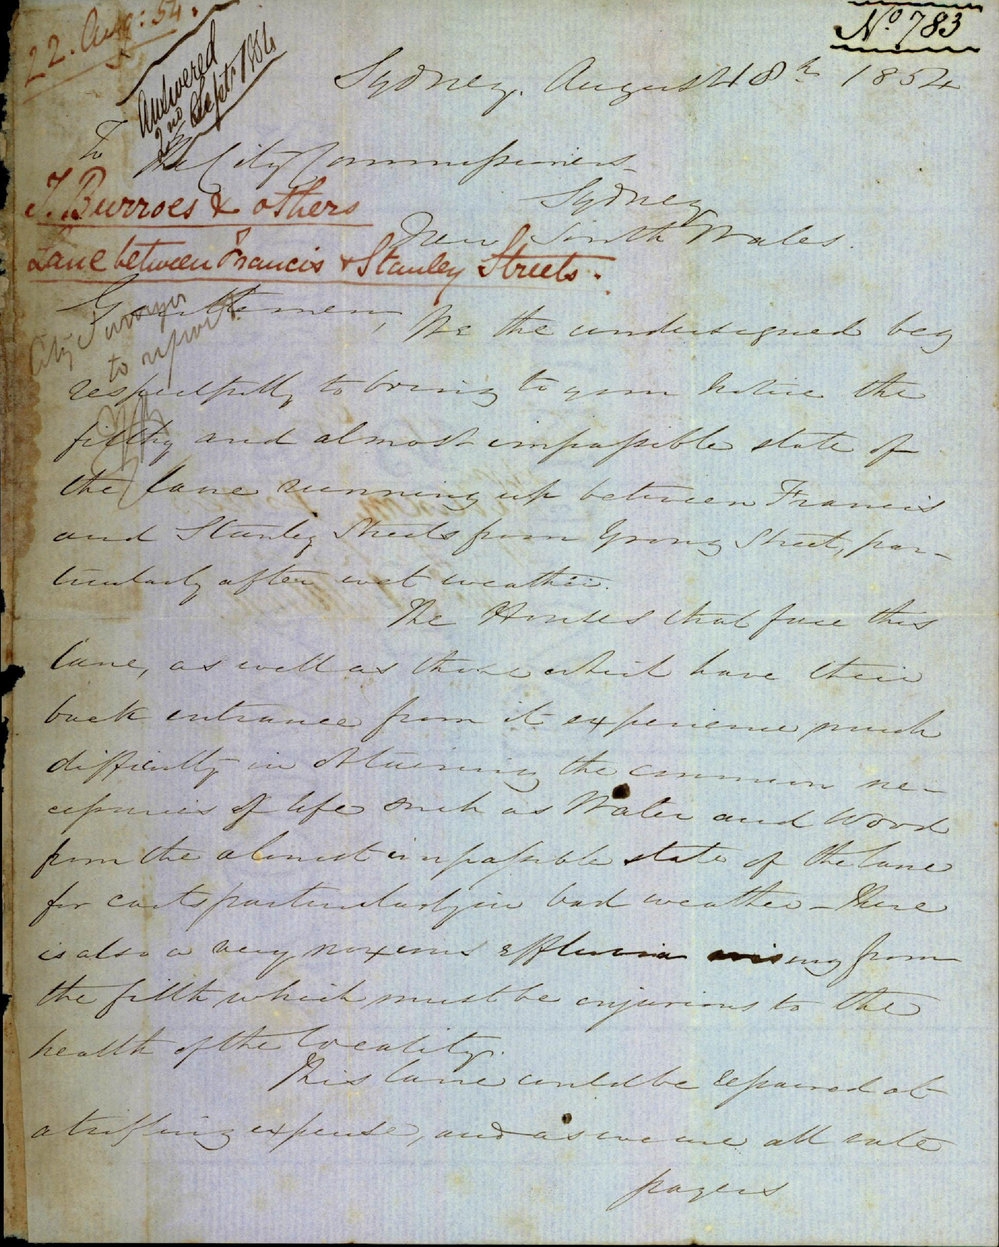 22. Aug: 54.
No. 783
Answered
2nd Sept 1854
Sydney. August 18th 1854
To The City Commissioners
Sydney
New South Wales.
J. Burroes & others
Lane between Francis & Stanley Streets.
City Surveyor
to report
Gentlemen, We the undersigned beg
respectfully to bring to your notice the
filthy and almost impassible state of
the lane running up between Francis
and Stanley Streets from Yrong Street, par-
ticularly after wet weather.
The Houses that face this
lane, as well as those which have their
back entrance from it experience much
difficulty in obtaining the common ne-
cessaries of life such as Water and Wood
from the almost impassible state of the lane
for carts particularly in bad weather – There
is also a very noxious effluvia arising from
the filth which must be injurious to the
health of the locality.
This lane could be repaired at
a trifling expense, and as we are all rate
payers